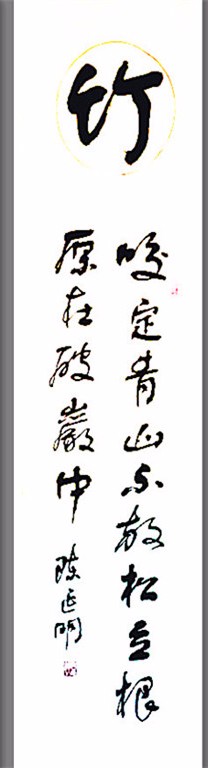 竹
咬定青山不放松立根
原在破巖中